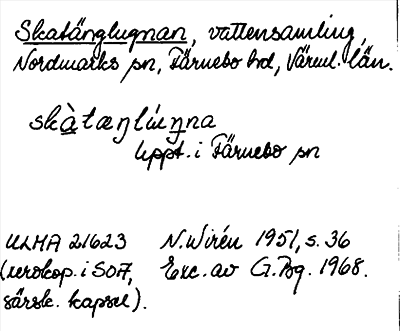 Skatänglugnan, vattensamling,
Nordmarks sn, Färnebo hd, Värml. län.
skàtæŋlúŋna
Uppt. i Färnebo sn
ULMA 21623 N. Wirén 1951, s. 36
(xerokop. i SOA, Exc. av G. Bg. 1968.
särsk. kapsel).